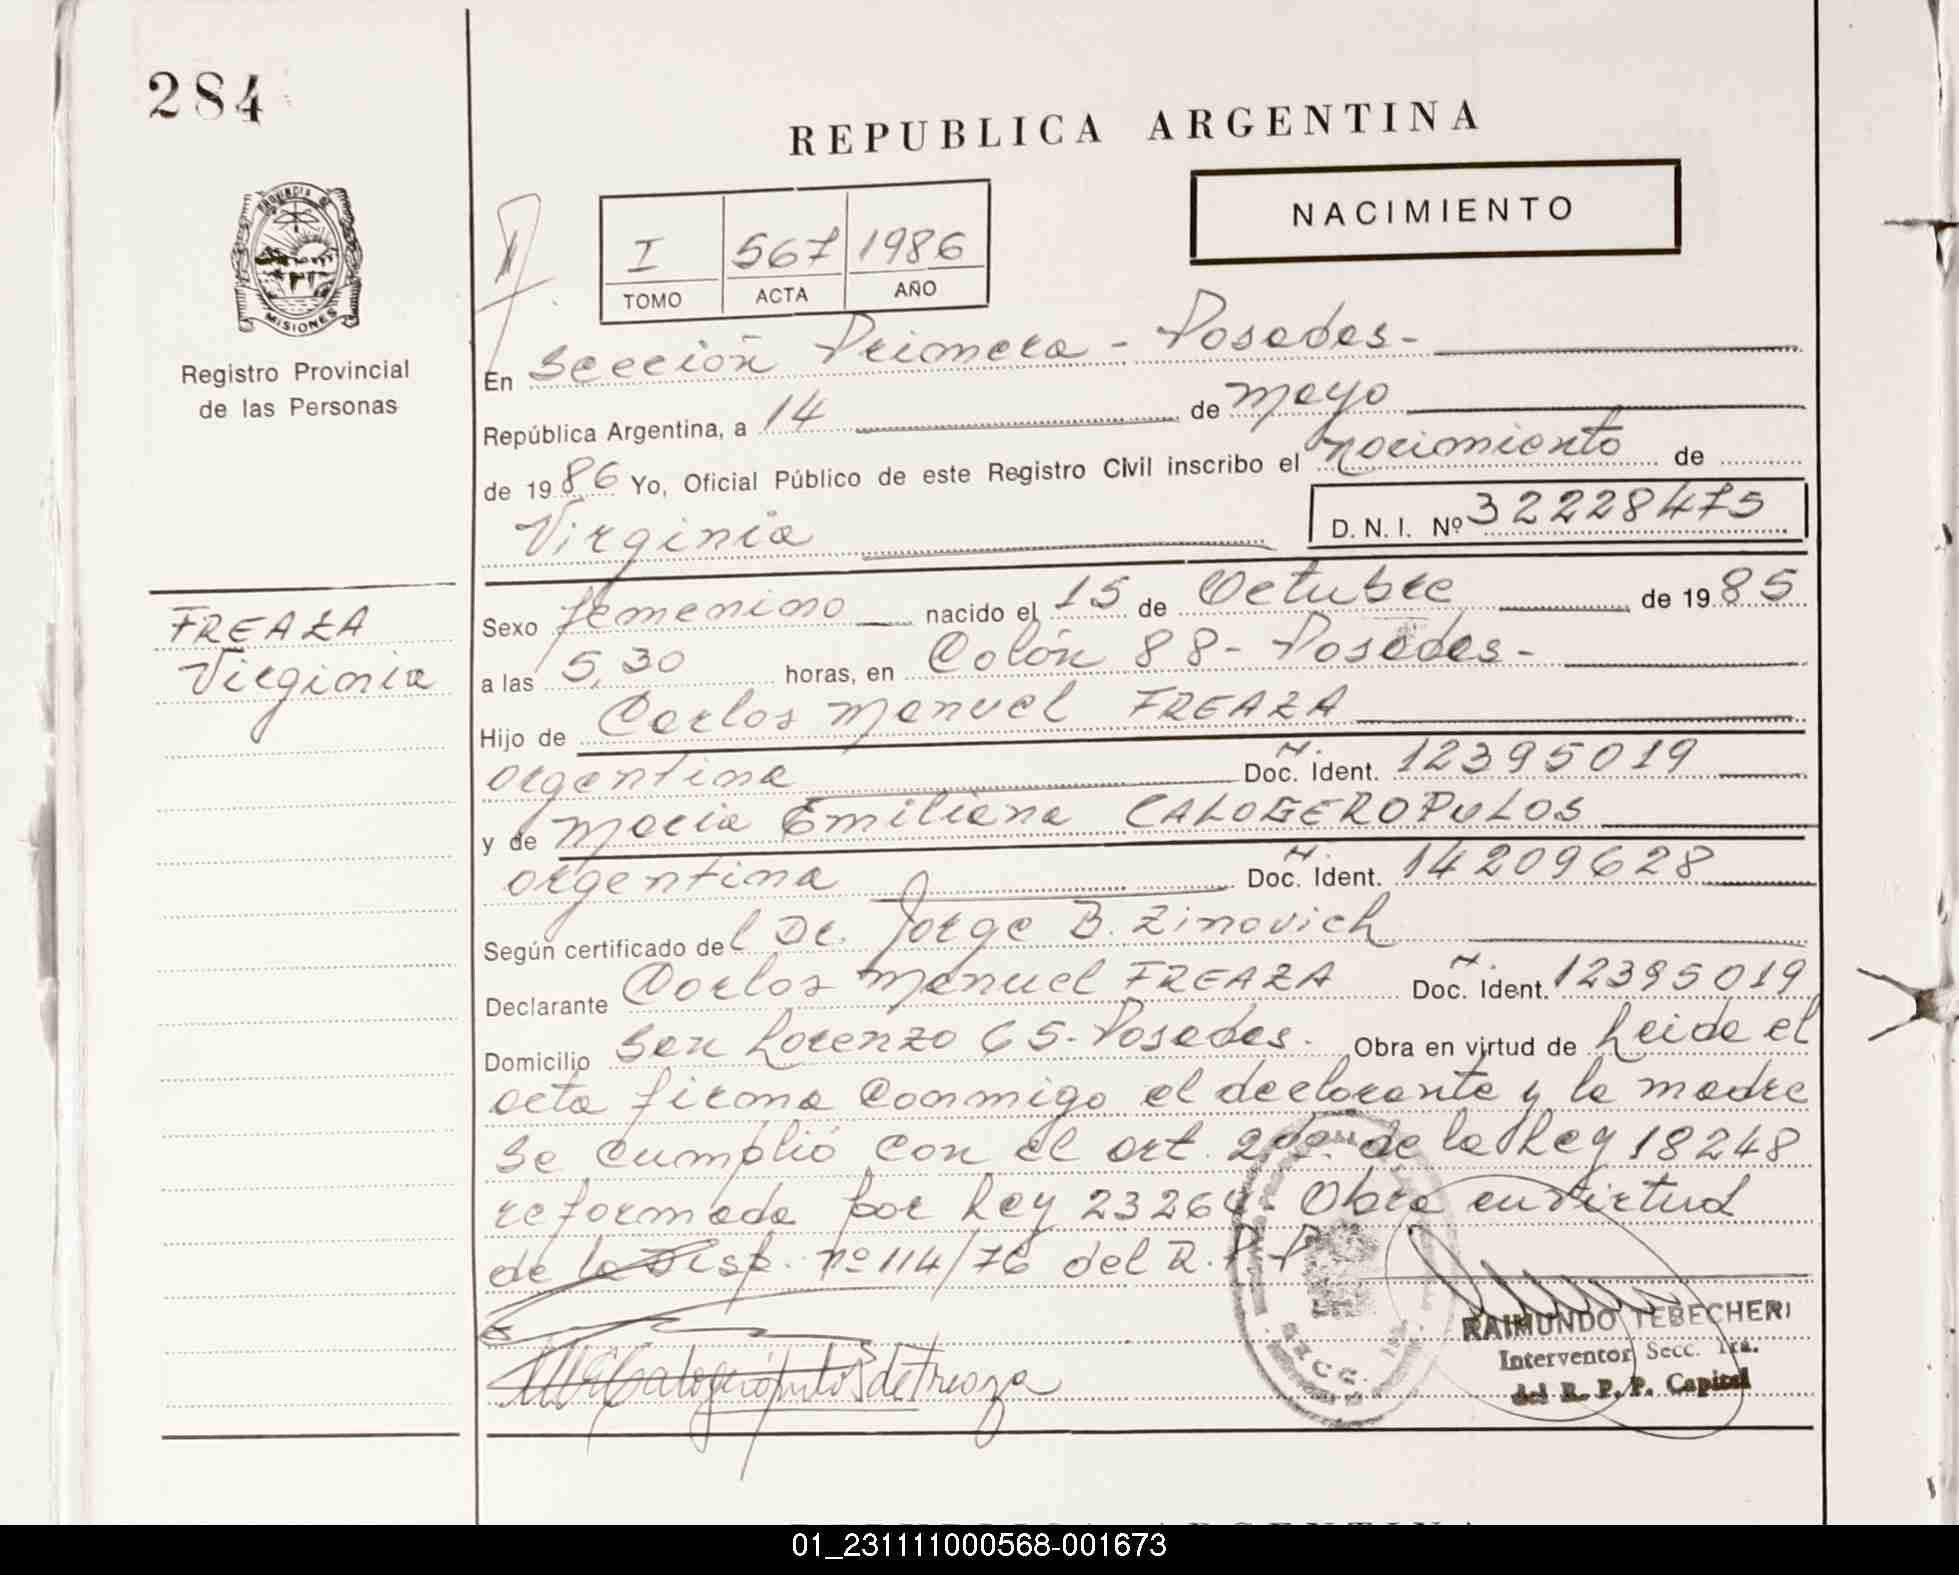 284
REPUBLICA ARGENTINA
NACIMIENTO
I 567 1986
TOMO ACTA AÑO
PROVINCIA DE
MISIONES
Registro Provincial
de las Personas
En Sección Primera - Posadas -
República Argentina, a 14 de mayo
de 1986 Yo, Oficial Público de este Registro Civil inscribo el nacimiento de
Virginia D. N. I. Nº 32228475
FREAZA
Virginia
Sexo femenino nacido el 15 de Octubre de 1985
a las 5,30 horas, en Colón 88 - Posadas -
Hijo de Carlos Manuel FREAZA
argentina Doc. Ident. 12395019
y de Maria Emiliana CALOGEROPULOS
argentina Doc. Ident. 14209628
Según certificado del Dr. Jorge B. Zinovich
Declarante Carlos Manuel FREAZA Doc. Ident. 12395019
Domicilio San Lorenzo 65 - Posadas. Obra en virtud de Leida el
acta firma conmigo el declarante y la madre
se cumplió con el art. 2do. de la Ley 18248
reformada por Ley 23264. Obra en virtud
de la Disp. nº 114/76 del R. P. P
RAIMUNDO TEBECHERI
Interventor Secc. 1ra.
del R. P. P. Capital
SECC. 1a.
REPUBLICA ARGENTINA
01_231111000568-001673